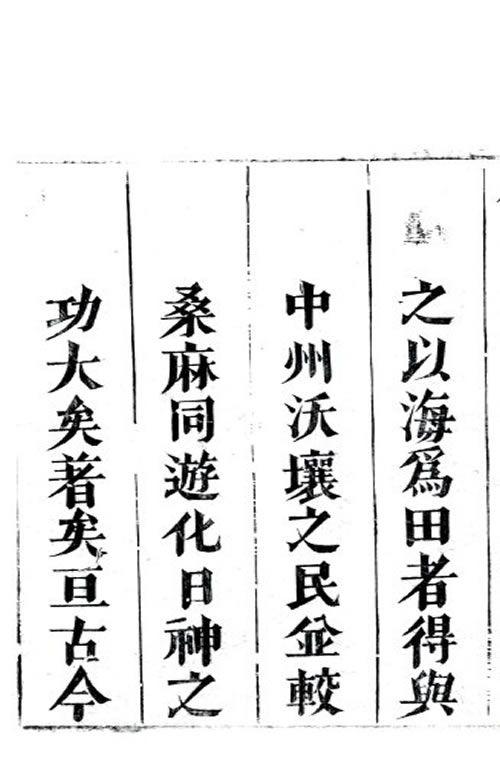 之以海爲田者得與
中州沃壤之民並較
桑麻同遊化日神之
功大矣著矣亘古今